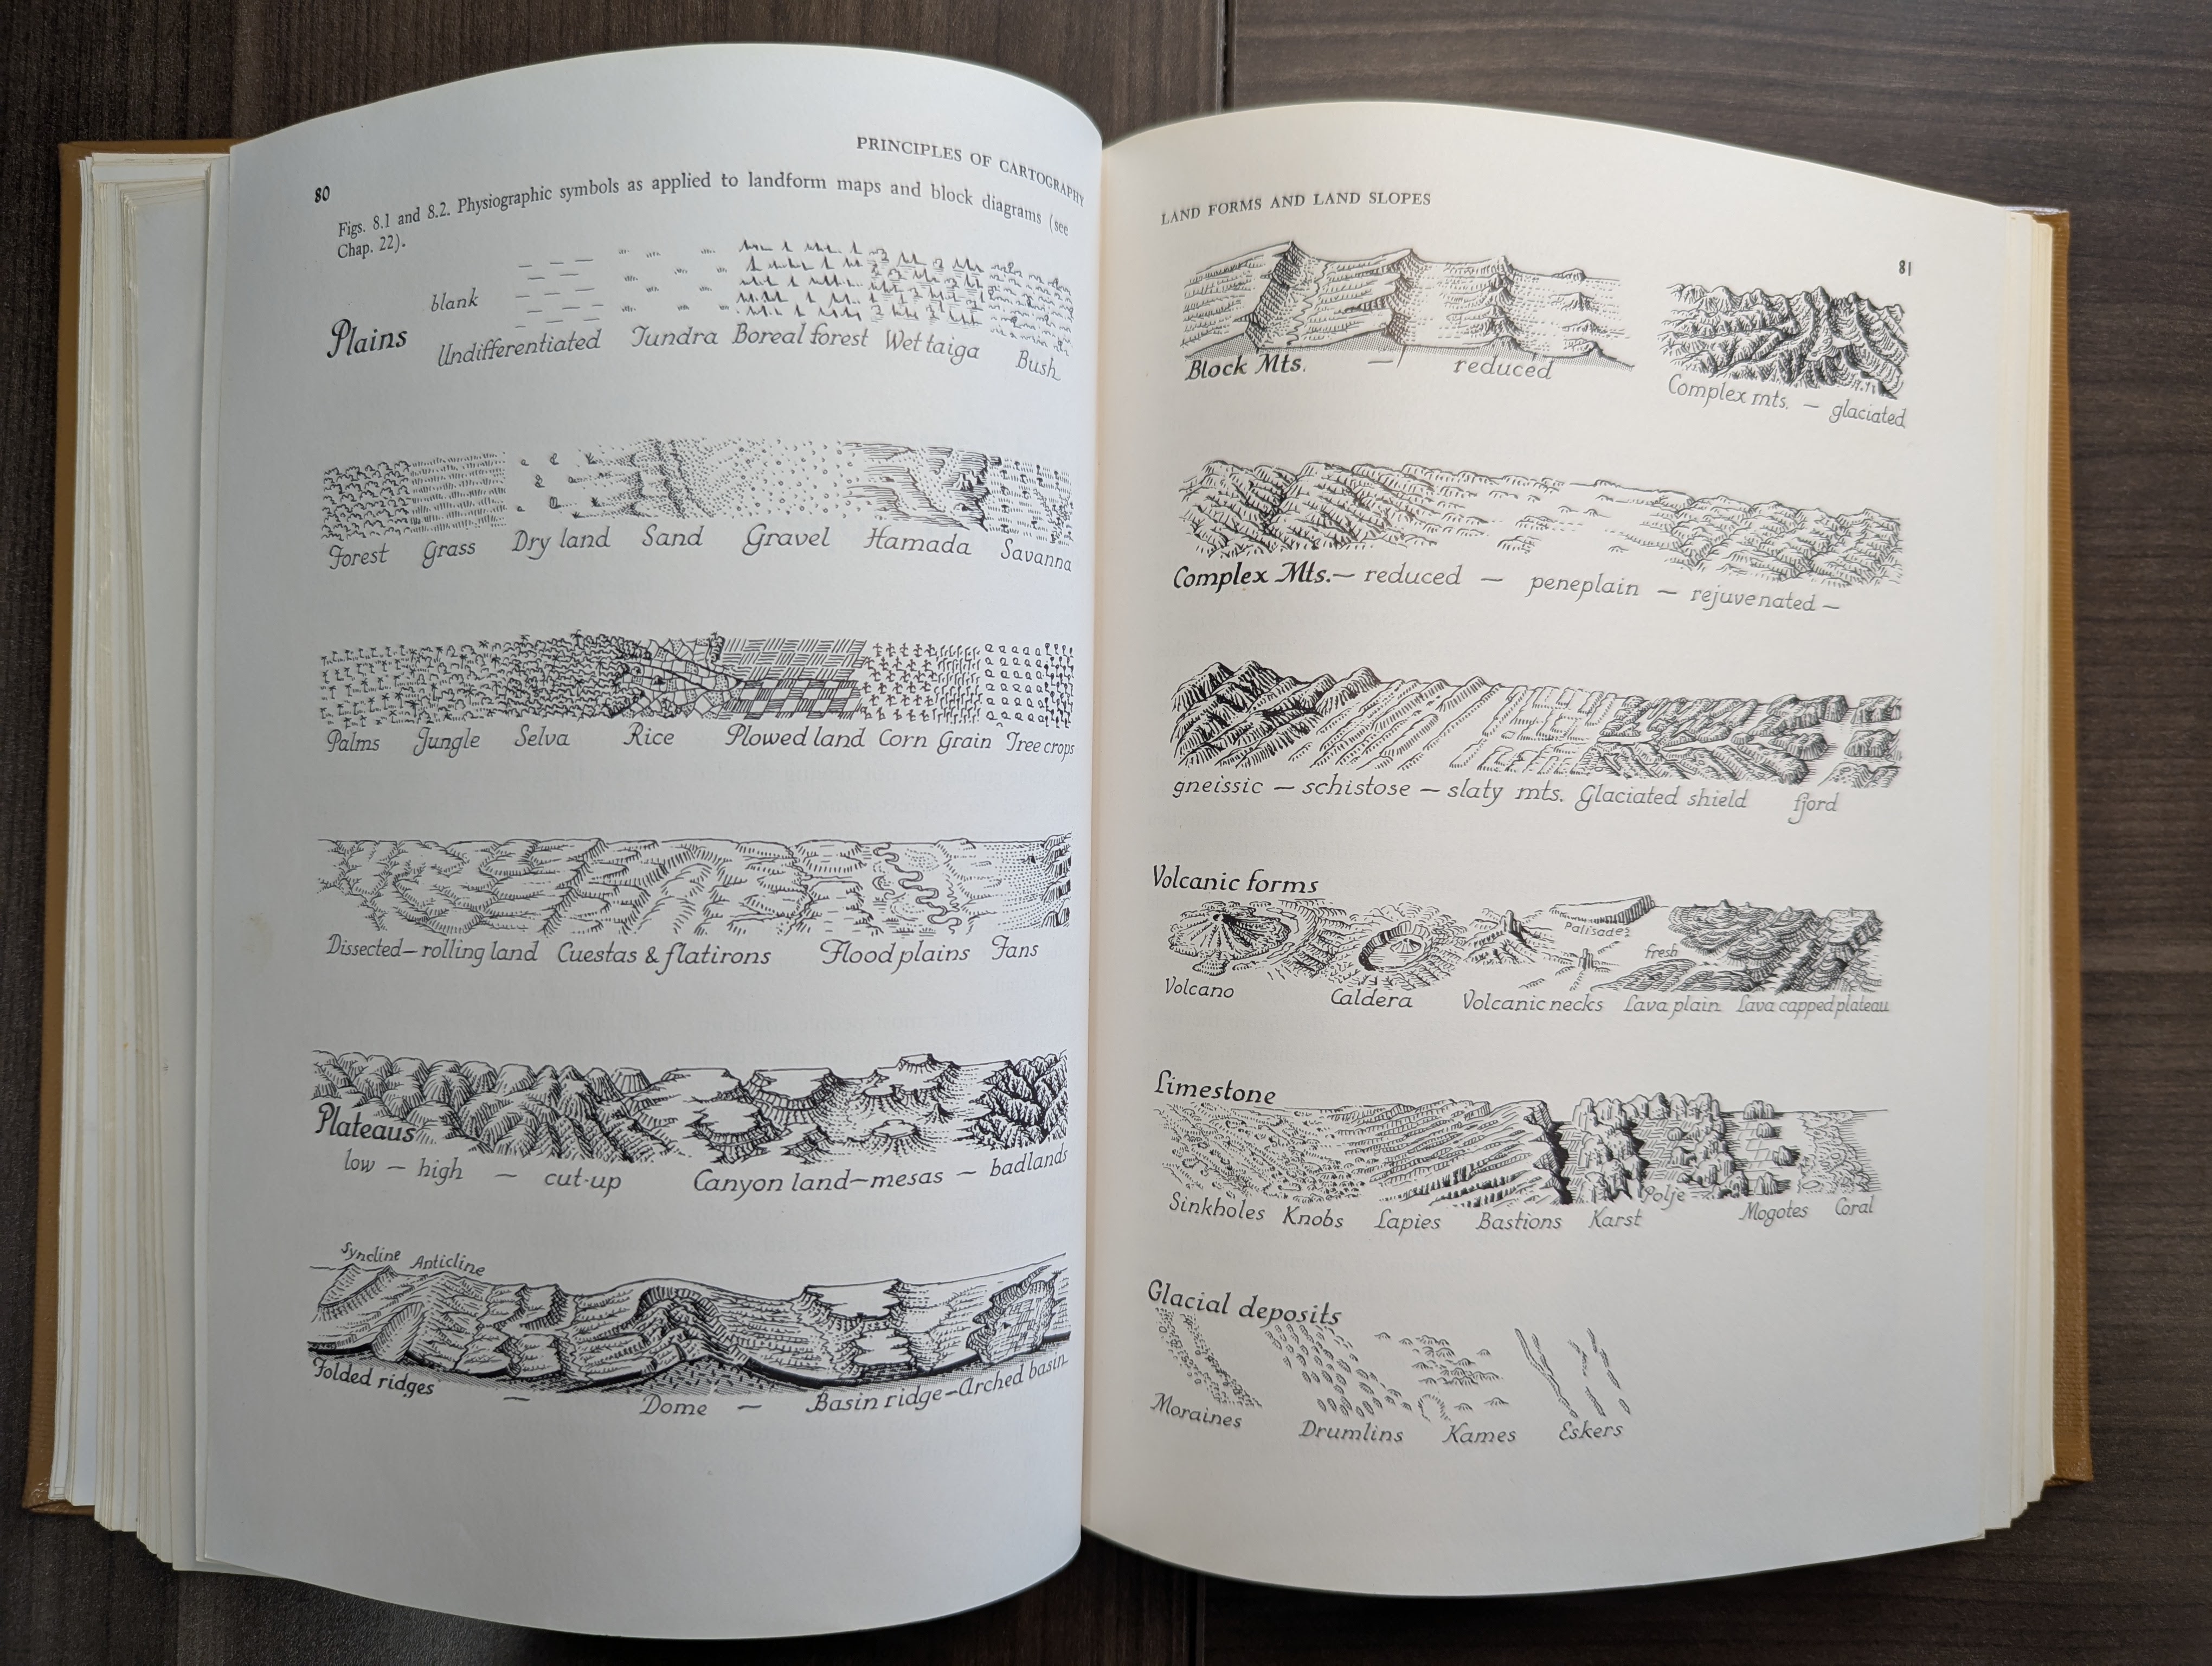 PRINCIPLES OF CARTOGRAPHY
80
Figs. 8.1 and 8.2. Physiographic symbols as applied to landform maps and block diagrams (see
Chap. 22).
Plains
blank
Undifferentiated Tundra Boreal forest Wet taiga Bush
Forest Grass Dry land Sand Gravel Hamada Savanna
Palms Jungle Selva Rice Plowed land Corn Grain Tree crops
Dissected — rolling land Cuestas & flatirons Flood plains Fans
Plateaus
low — high — cut-up Canyon land — mesas — badlands
Syncline Anticline
Folded ridges — Dome — Basin ridge — Arched basin
LAND FORMS AND LAND SLOPES
81
Block Mts. — reduced
Complex mts. — glaciated
Complex Mts. — reduced — peneplain — rejuvenated —
gneissic — schistose — slaty mts. Glaciated shield fjord
Volcanic forms
Palisades
fresh
Volcano Caldera Volcanic necks Lava plain Lava capped plateau
Limestone
Polje
Sinkholes Knobs Lapies Bastions Karst Mogotes Coral
Glacial deposits
Moraines Drumlins Kames Eskers